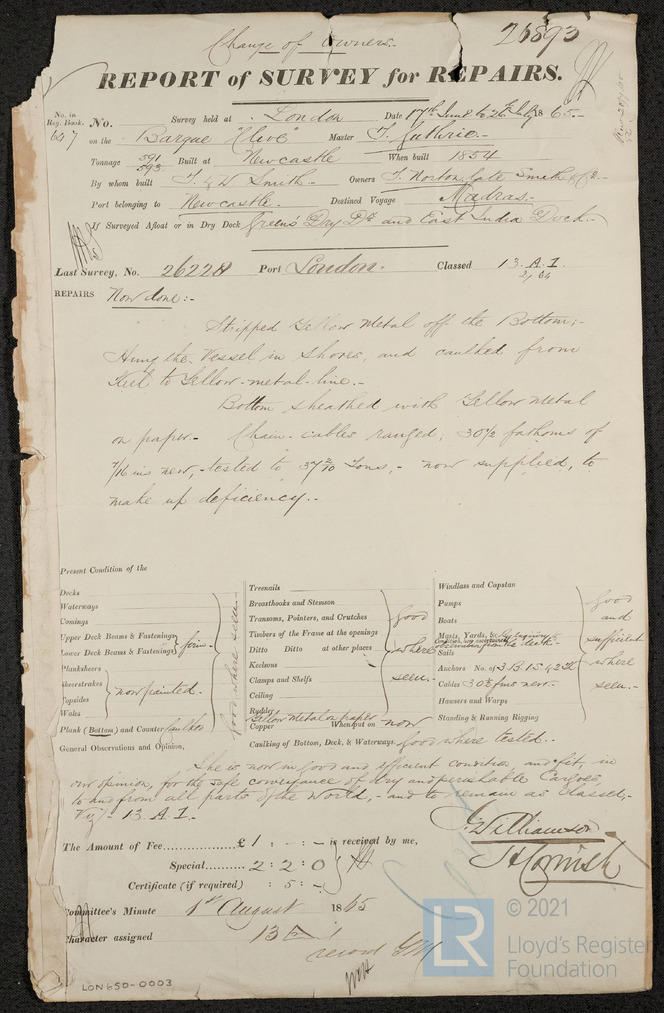 Change of Owners.-
26893
REPORT of SURVEY for REPAIRS.
No. in Reg. Book. 647
No. Survey held at London Date 17th June to 26th July 1865.-
on the Barque "Clive" Master T. Guthrie.-
Tonnage 591 593 Built at Newcastle When built 1854
By whom built T. & W. Smith.- Owners T. Norton, late Smith & Co.
Port belonging to Newcastle.- Destined Voyage Madras.-
If Surveyed Afloat or in Dry Dock Green's Dry Dk and East India Dock.-
Last Survey, No. 26228 Port London. Classed 13. A. 1.
2/64
REPAIRS Now done:-
Stripped Yellow Metal off the Bottom;-
Hung the Vessel in Shores, and caulked from
Keel to Yellow-metal-line.-
Bottom sheathed with Yellow Metal
on paper.- Chain-cables ranged; 30½ fathoms of
7/16 ins new, tested to 37 2/10 Tons,- now supplied, to
make up deficiency.-
Present Condition of the
Decks
Waterways
Comings
Upper Deck Beams & Fastenings
Lower Deck Beams & Fastenings
firm.-
Planksheers
Sheerstrakes
Topsides
Wales
now painted.-
Plank (Bottom) and Counter caulked
good where seen.-
General Observations and Opinion,
Treenails
Breasthooks and Stemson
Transoms, Pointers, and Crutches
Timbers of the Frame at the openings
Ditto Ditto at other places
Keelsons
Clamps and Shelfs
Ceiling
Rudder
good where seen.-
Yellow Metal on paper
Copper When put on now
Caulking of Bottom, Deck, & Waterways good where tested..
Windlass and Capstan
Pumps
Boats
Masts, Yards, &c
Sails
Anchors No. of 3 B. 1 S. 42 K
Cables 30½ fms new.-
Hawsers and Warps
Standing & Running Rigging
good and sufficient where seen.-
She is now in good and efficient condition, and fit, in
our opinion, for the safe conveyance of dry and perishable Cargoes,
to and from all parts of the World,- and to remain as Classed,-
Viz/- 13. A. 1.
J. Williamson
The Amount of Fee £ 1 : - : - is received by me,
Special 2 : 2 : 0
Certificate (if required) : 5 : -
T. H. Cornish
Committee's Minute 1st August 1865
Character assigned 13 A 1
record
LON650-0003
LR
© 2021
Lloyd's Register
Foundation